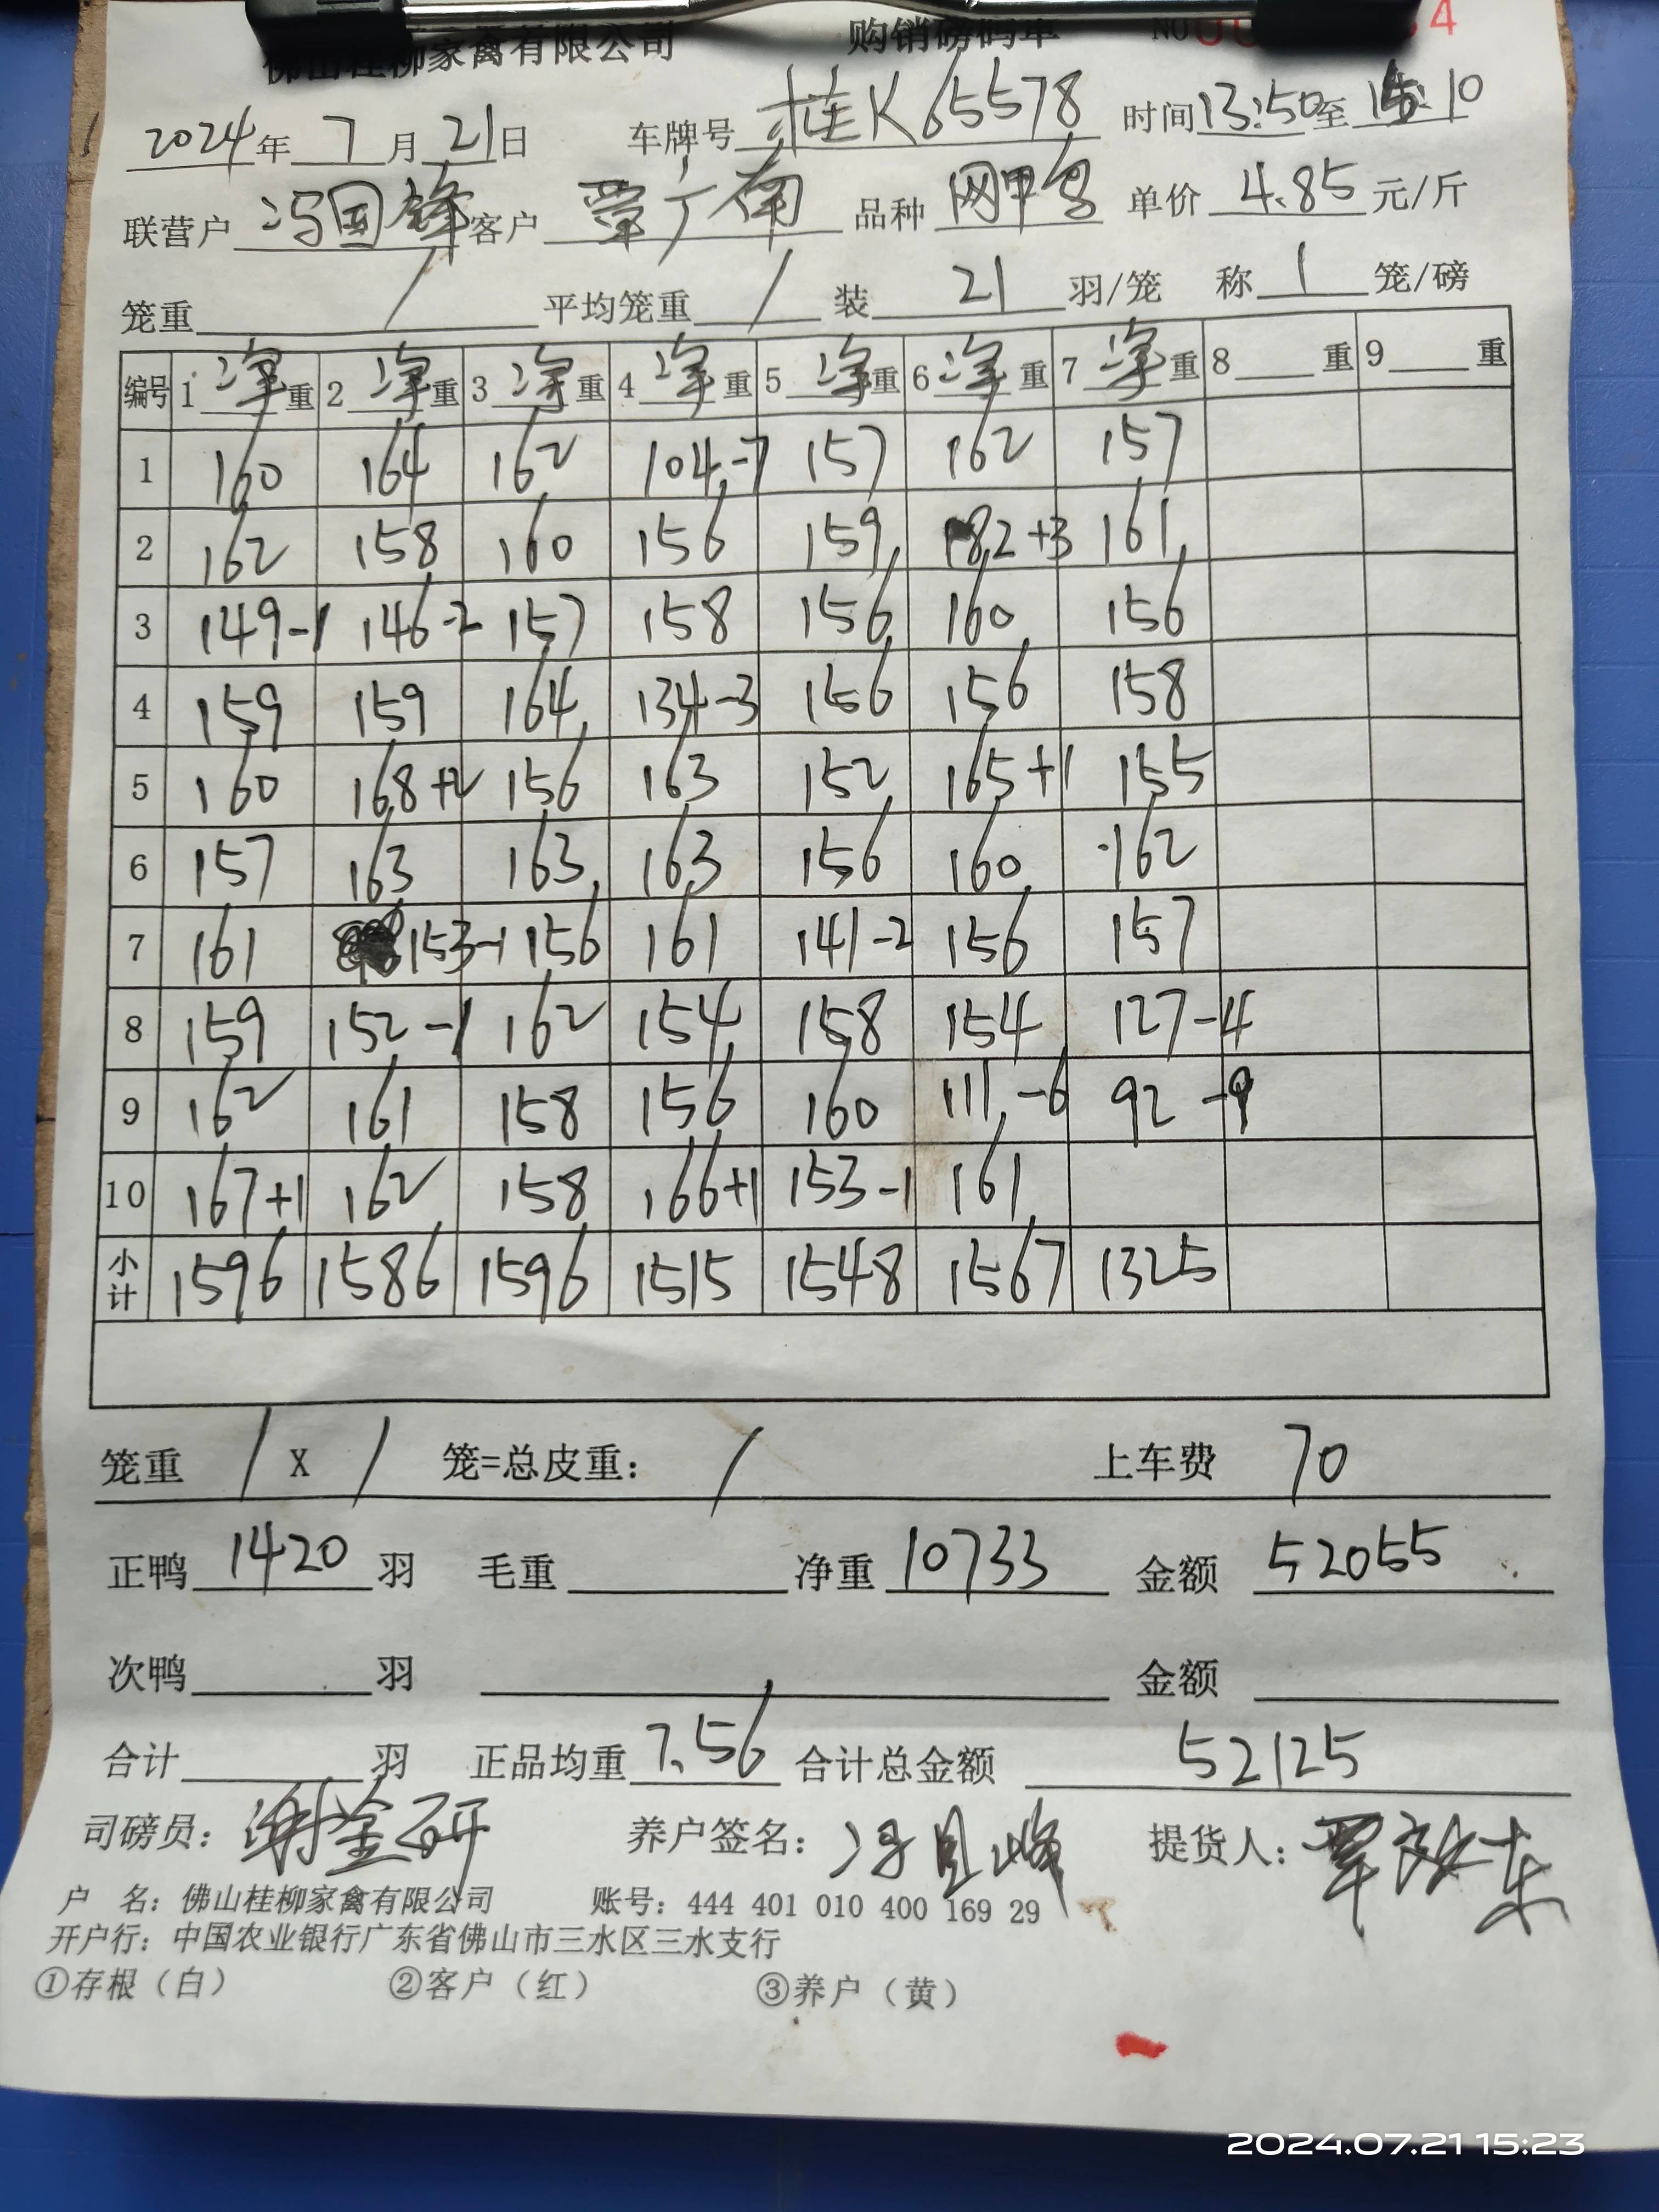 佛山桂柳家禽有限公司 购销磅码单 NO 4
2024年 7月 21日 车牌号 桂K65578 时间 13:50至 15:10
联营户 冯国锋 客户 覃广南 品种 单价 4.85 元/斤
笼重 / 平均笼重 / 装 21 羽/笼 称 1 笼/磅
编号 1 净重 2 净重 3 净重 4 净重 5 净重 6 净重 7 净重 8 重 9 重
1 160 164 162 104-7 157 162 157
2 162 158 160 156 159 182+3 161
3 149-1 146-2 157 158 156 160 156
4 159 159 164 134-3 156 156 158
5 160 168+2 156 163 152 165+1 155
6 157 163 163 163 156 160 162
7 161 153-1 156 161 141-2 156 157
8 159 152-1 162 154 158 154 127-4
9 162 161 158 156 160 111-6 92-9
10 167+1 162 158 166+1 153-1 161
小计 1596 1586 1596 1515 1548 1567 1325
笼重 / X / 笼=总皮重: / 上车费 70
正鸭 1420 羽 毛重 净重 10733 金额 52055
次鸭 羽 金额
合计 羽 正品均重 7.56 合计总金额 52125
司磅员: 谢金研 养户签名: 冯国峰 提货人: 覃
户 名: 佛山桂柳家禽有限公司 账号: 444 401 010 400 169 29
开户行: 中国农业银行广东省佛山市三水区三水支行
①存根（白） ②客户（红） ③养户（黄）
2024.07.21 15:23